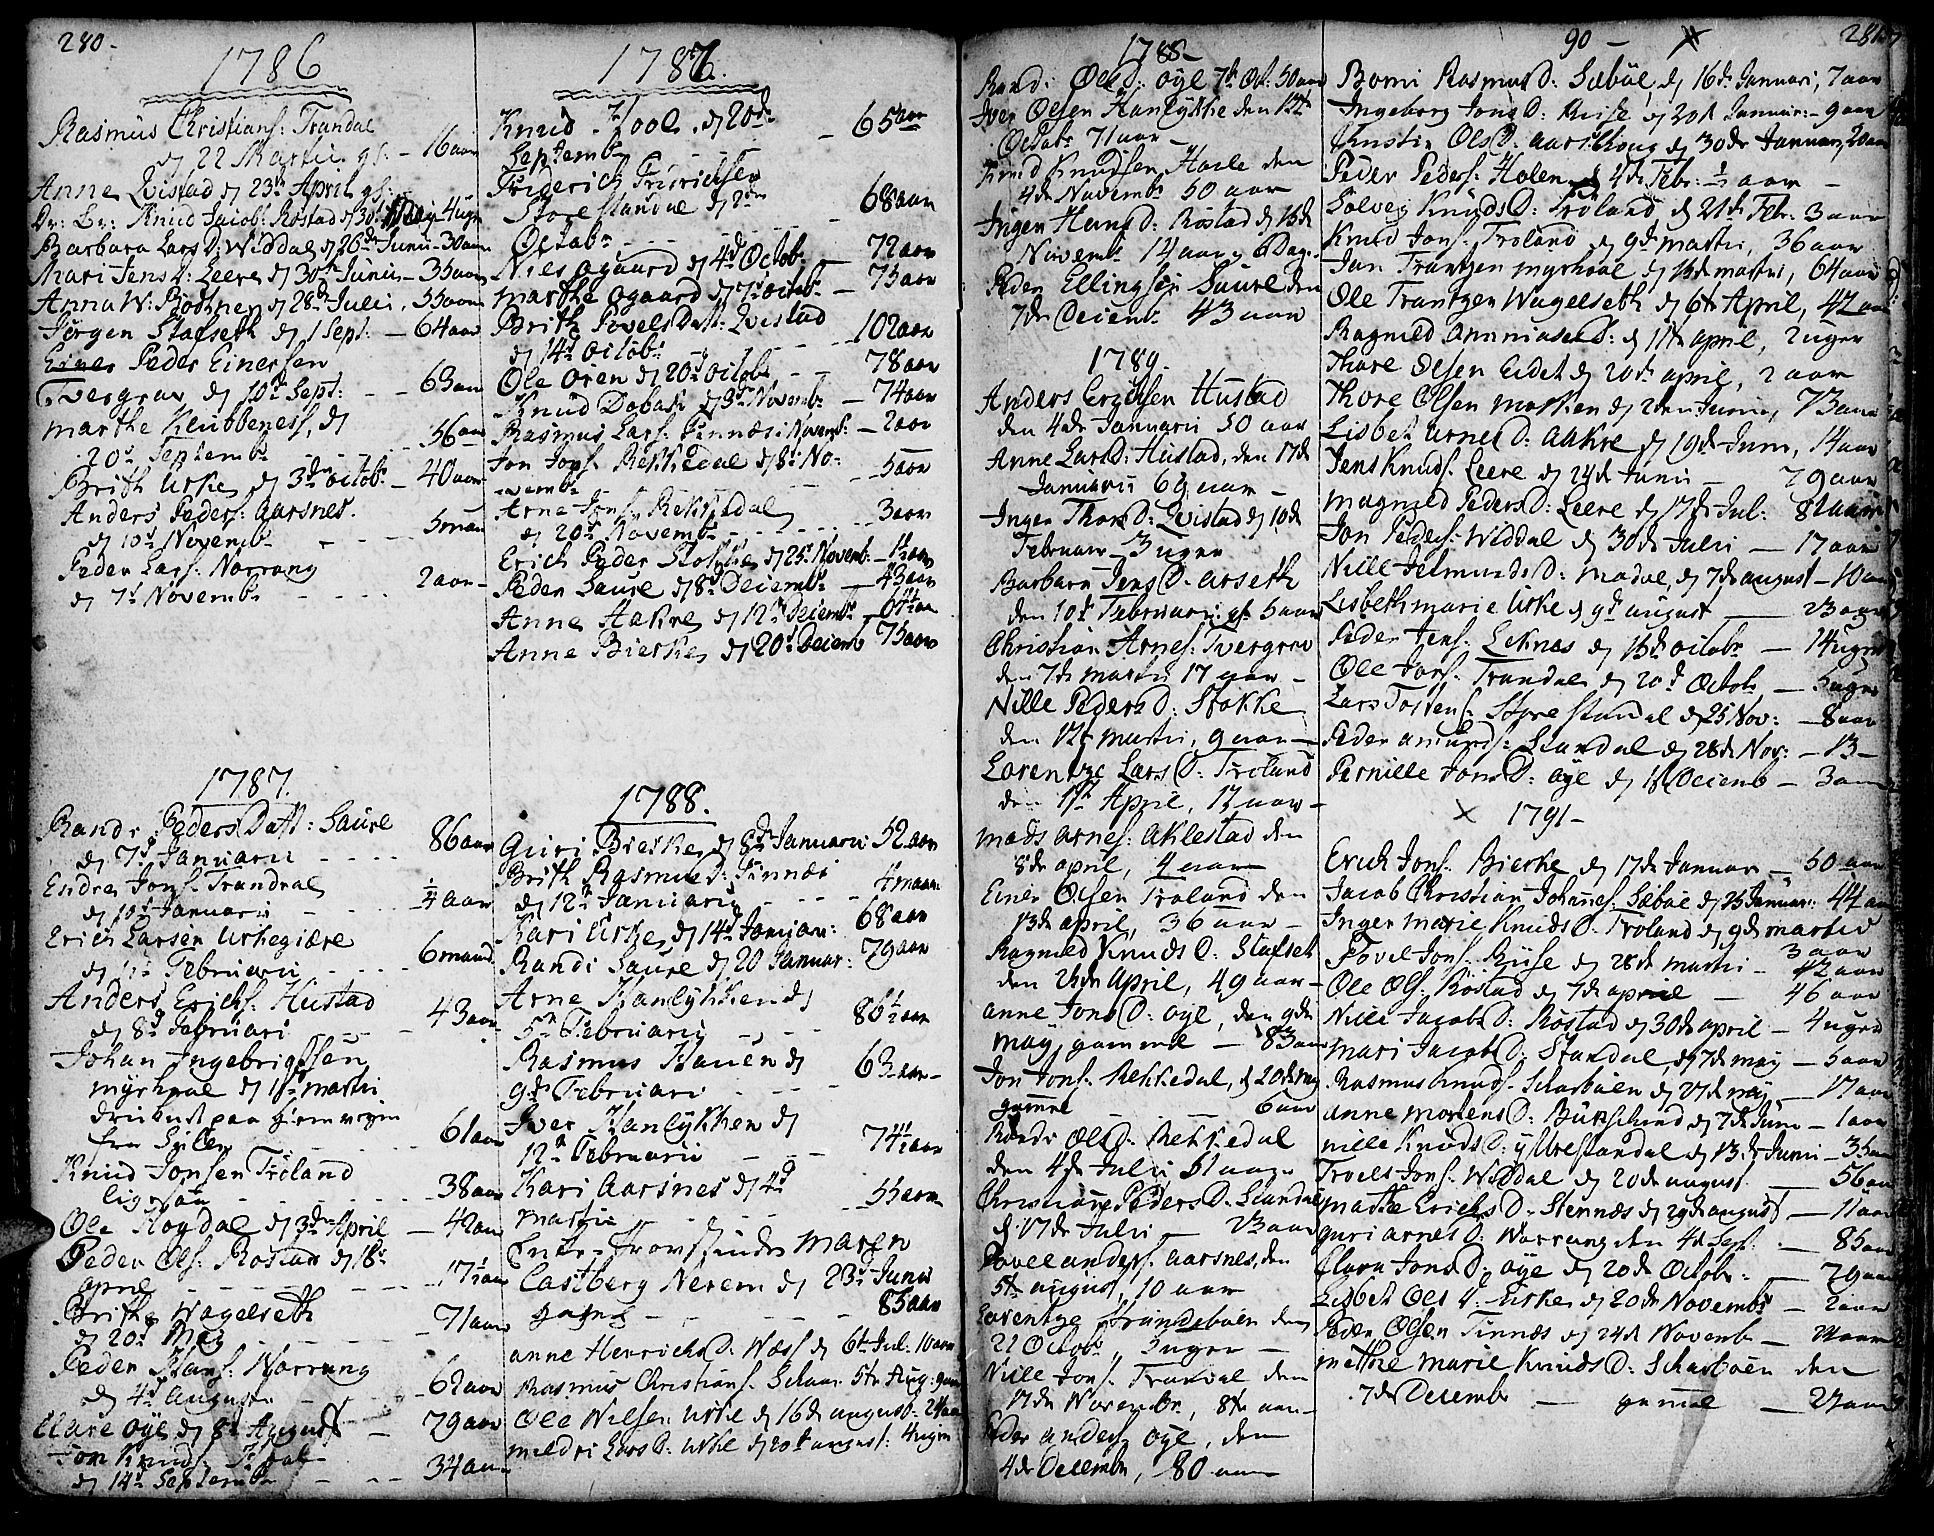 280-
1786
Rasmus Christians: Trandal
dj 22 Martii gl: - 16 aar
Anne Qvistad dj 23d April gl:
Dr: Br: Knud Jacobs: Rostad dj 30d May 4 ugr
Barbara Lars D: Widdal dj 26de Junii - 30 aar
Mari Jens D: Leere dj 30te Junii - 35 aar
Anna W: Bödkner dj 28d Julii, 55 aar
Jörgen Stafseth dj 1 Sept: - 64 aar
Einer Peder Einersen
Tvergrav dj 10d Sept: - - 63 aar
Marthe Klubbenes, dj
20d Septembr - - - 56 aar
Brith Urke dj 3de octobr - 40 aar
Anders Peders: Aarsnes.
dj 10d Novembr - - - 5 maan
Peder Lars: Norrang
dj 7d Novembr - - - 2 aar-
1787.
Randi Peders Datt: Saure
dj 7d Januarii - - - - 86 aar
Endre Jons: Trandal
dj 10d Januarii - - - ¼ aar
Erich Larsen Urkegiære
dj 11d Februarii - - - 6 maand
Anders Erichs: Hustad
dj 8d Februari - - - 43 aar
Johan Ingebrigtsen
Myrhoal dj 18d Martii
druknet paa hiemvejen
fra Spilen - - - 61 aar
Knud Jonsen Troland
ligesaa - - - - 38 aar
Ole Kogdal dj 3de April - 42 aar
Peder Ols: Rostad dj 18d
April - - - 17½ aar
Brithe Wagelseth
dj 20d May - - - - 71 aar
Peder Hans: Norrang
dj 4d Augusti - - - 62 aar
Clare Öye dj 8d August - 79 aar
Jon Knuds: Hoel
dj 14d Septembr - - - 34 aar
1787.
Knud Hool, dj 20de
Septembr - - - 65 aar
Friderich Fridrichsen
Store Standal dj 2den
Octobr - - - 68 aar
Niels Ogaard dj 4d Octobr - 72 aar
Marthe Ogaard dj 7d octobr - 75 aar
Brith Povels Datt: Qvistad
dj 14d octobr - - - 102 aar
Ole Ören dj 20d octobr - - 78 aar
Knud Dobak dj 3d Novembr - 74 aar
Rasmus Lars: Finnæs: Novemb: - 2 aar
Jon Jons: Rekkedal dj 8d No-
vembr - - - 5 aar
Arne Jons: Rekkedal
dj 20d Novembr - - - 3 aar
Erich Peder Stokke dj 25d Novemb. - 1½ aar
Peder Saure dj 8d Decembr - 43 aar
Anne Aakre dj 12te Decembr 64½ aar
Anne Bierke dj 20d Decemb 75 aar
1788.
Guri Bierke dj 8de Januarii 52 aar
Brith Rasmus D: Finnæs
dj 12te Januarii - - - 4 maan
Kari Urke dj 14d Januar: 68 aar
Randi Saure dj 20 Januar: 79 aar
Arne Hanlykken dj
5te Februarii - - - 86½ aar
Rasmus Hauen dj
9de Februari - - - 63 aar-
Iver Hanlykken dj
12te Februarii - - - 74½ aar
Kari Aarsnes dj 4d
Martii - - - 55 aar
Enke-Provstinde Maren
Castberg Nerem dj 23d Junii
gagnl - - - 85 aar
Anne Henrichs D: Næss dj 6te Jul: 10 aar
Rasmus Christians: Schaar 5te Aug: 9 aar
Ole Nilsen Urke dj 16de august: 24 aar
Mildri Lars D: Urke dj 20de august: 4 ugr
1788-
Randi Ols D: Öye 7de Oct: 50 aar
Iver Olsen Hanlykke den 12te
Octobr 71 aar -
Knud Knudsen Hasle den
4de Novembr 50 aar
Inger Hans D: Rostad dj 15de
Novembr 14 aar 6 Dag.
Peder Ellingsen Saure den
7de Decembr 43 aar
1789.
Anders Erichsen Hustad
den 4de Januarii 50 aar
Anne Lars D: Hustad, den 17de
Januarii 69 aar -
Inger Thors D: Qvistad dj 10de
Februar 3 uger
Barbara Jens D: Urseth
den 10de Februarii gl 5 aar
Christian Arnes: Tvergrov
den 7de Martii 17 aar -
Nille Peders D: Stokke
den 12te Martii, 9 aar -
Lorentze Lars D: Troland
den 17de April, 12 aar -
Mads Arnes: Aklestad den
8de april, 4 aar
Einer Olsen Troland den
13de april, 36 aar -
Ragnild Knuds D: Stafset
den 26de April, 49 aar -
Anne Jons D: Öye, den 9de
May, gammel - 83 aar
Jon Jons: Rekkedal, dj 20de May
gamel - - 6 aar
Rande Ols D: Rekkedal
den 4de Julii 51 aar
Christiane Peders D: Standal
dj 17de Julii - 23 aar
Povel Anders: Aarsnes, den
5te august, 10 aar
Lorentze Strandeböen den
22 Octobr, 3 uger -
Nille Jons: Trandal den
17de Novembr, 8½ aar -
Peder Anders: Öye, den
4de Decembr, 80 aar
90 -
281
Bomi Rasmus D: Sæböe, dj 16de Januari, 7 aar
Ingeborg Jons D: Riise dj 20d Januari - 9 aar
Christin Ols D: Aarskoug dj 30de Januar, 20 aar
Peder Peders: Holen dj 4de Febr: ½ aar -
Solveg Knuds D: Troland dj 21de Febr: 3 aar
Knud Jons: Troland dj 9de Martii, 36 aar
Jan Frantzen Myrhoal dj 15de Martii, 64 aar
Ole Frantzen Wagelseth dj 6te April, 42 aar
Ragnild Annanias D: dj 11te april, 2 uger
Thore Olsen Eidet dj 20de april, 2 aar
Thore Olsen Mosken dj 2den Junii, 73 aar
Lisbet Arnes D: Aakre dj 19de Juni, 14 aar
Jens Knuds: Leere dj 24de Junii - 79 aar
Magnild Peders D: Leere dj 17de Jul: 82 aar
Jon Peders: Widdal dj 30de Julii - 17 aar
Nille Helmunds D: Madal, dj 7de august - 10 aar
Lisbeth Marie Urke dj 9de august - 23 aar
Peder Jens: Leknes dj 15de octobr - 14 uger
Ole Jons: Trandal dj 20d Octob. - 5 uger
Lars Tostens: Store Standal dj 25 Nov: - 8 aar
Peder Amunds: Standal dj 28de Nov: - 13 -
Pernille Jons D: Öye dj 18 Decemb - 3 aar
x 1791-
Erich Jons: Bierke dj 17de Januar - 50 aar
Jacob Christian Johanes: Sæböe dj 25 Januar: 44 aar
Inger Marie Knuds D: Troland dj 9de Martii
3 aar
Povel Jons: Riise dj 28de Martii - 42 aar
Ole Ols: Röstad dj 7de april - 46 aar
Nille Jacobs D: Röstad dj 30de april - 4 uger
Mari Jacobs D: Standal, dj 7de May - 5 aar
Rasmus Knuds: Scharböen dj 27de May, - 17 aar
Anne Mortens D: Bukschind dj 7de Juni - 1 aar
Nille Knuds D: Yttrestandal dj 13de Junii - 35 aar
Troels Jons: Widdal dj 20de august - 56 aar
Mathe Erichs D: Stennæs dj 29de august - 11 aar
Guri Arnes D: Norrang den 4de Sep: - 85 aar
Clara Jons D: Öye dj 20de Octobr: - 79 aar
Lisbet Ols D: Urke dj 20de Novembr - 2 aar
Peder Olsen Finnæs dj 24de Novemb - 24 aar
Mathe Marie Knuds D: Scharböen den
7de Decembr - gamel - 27 aar